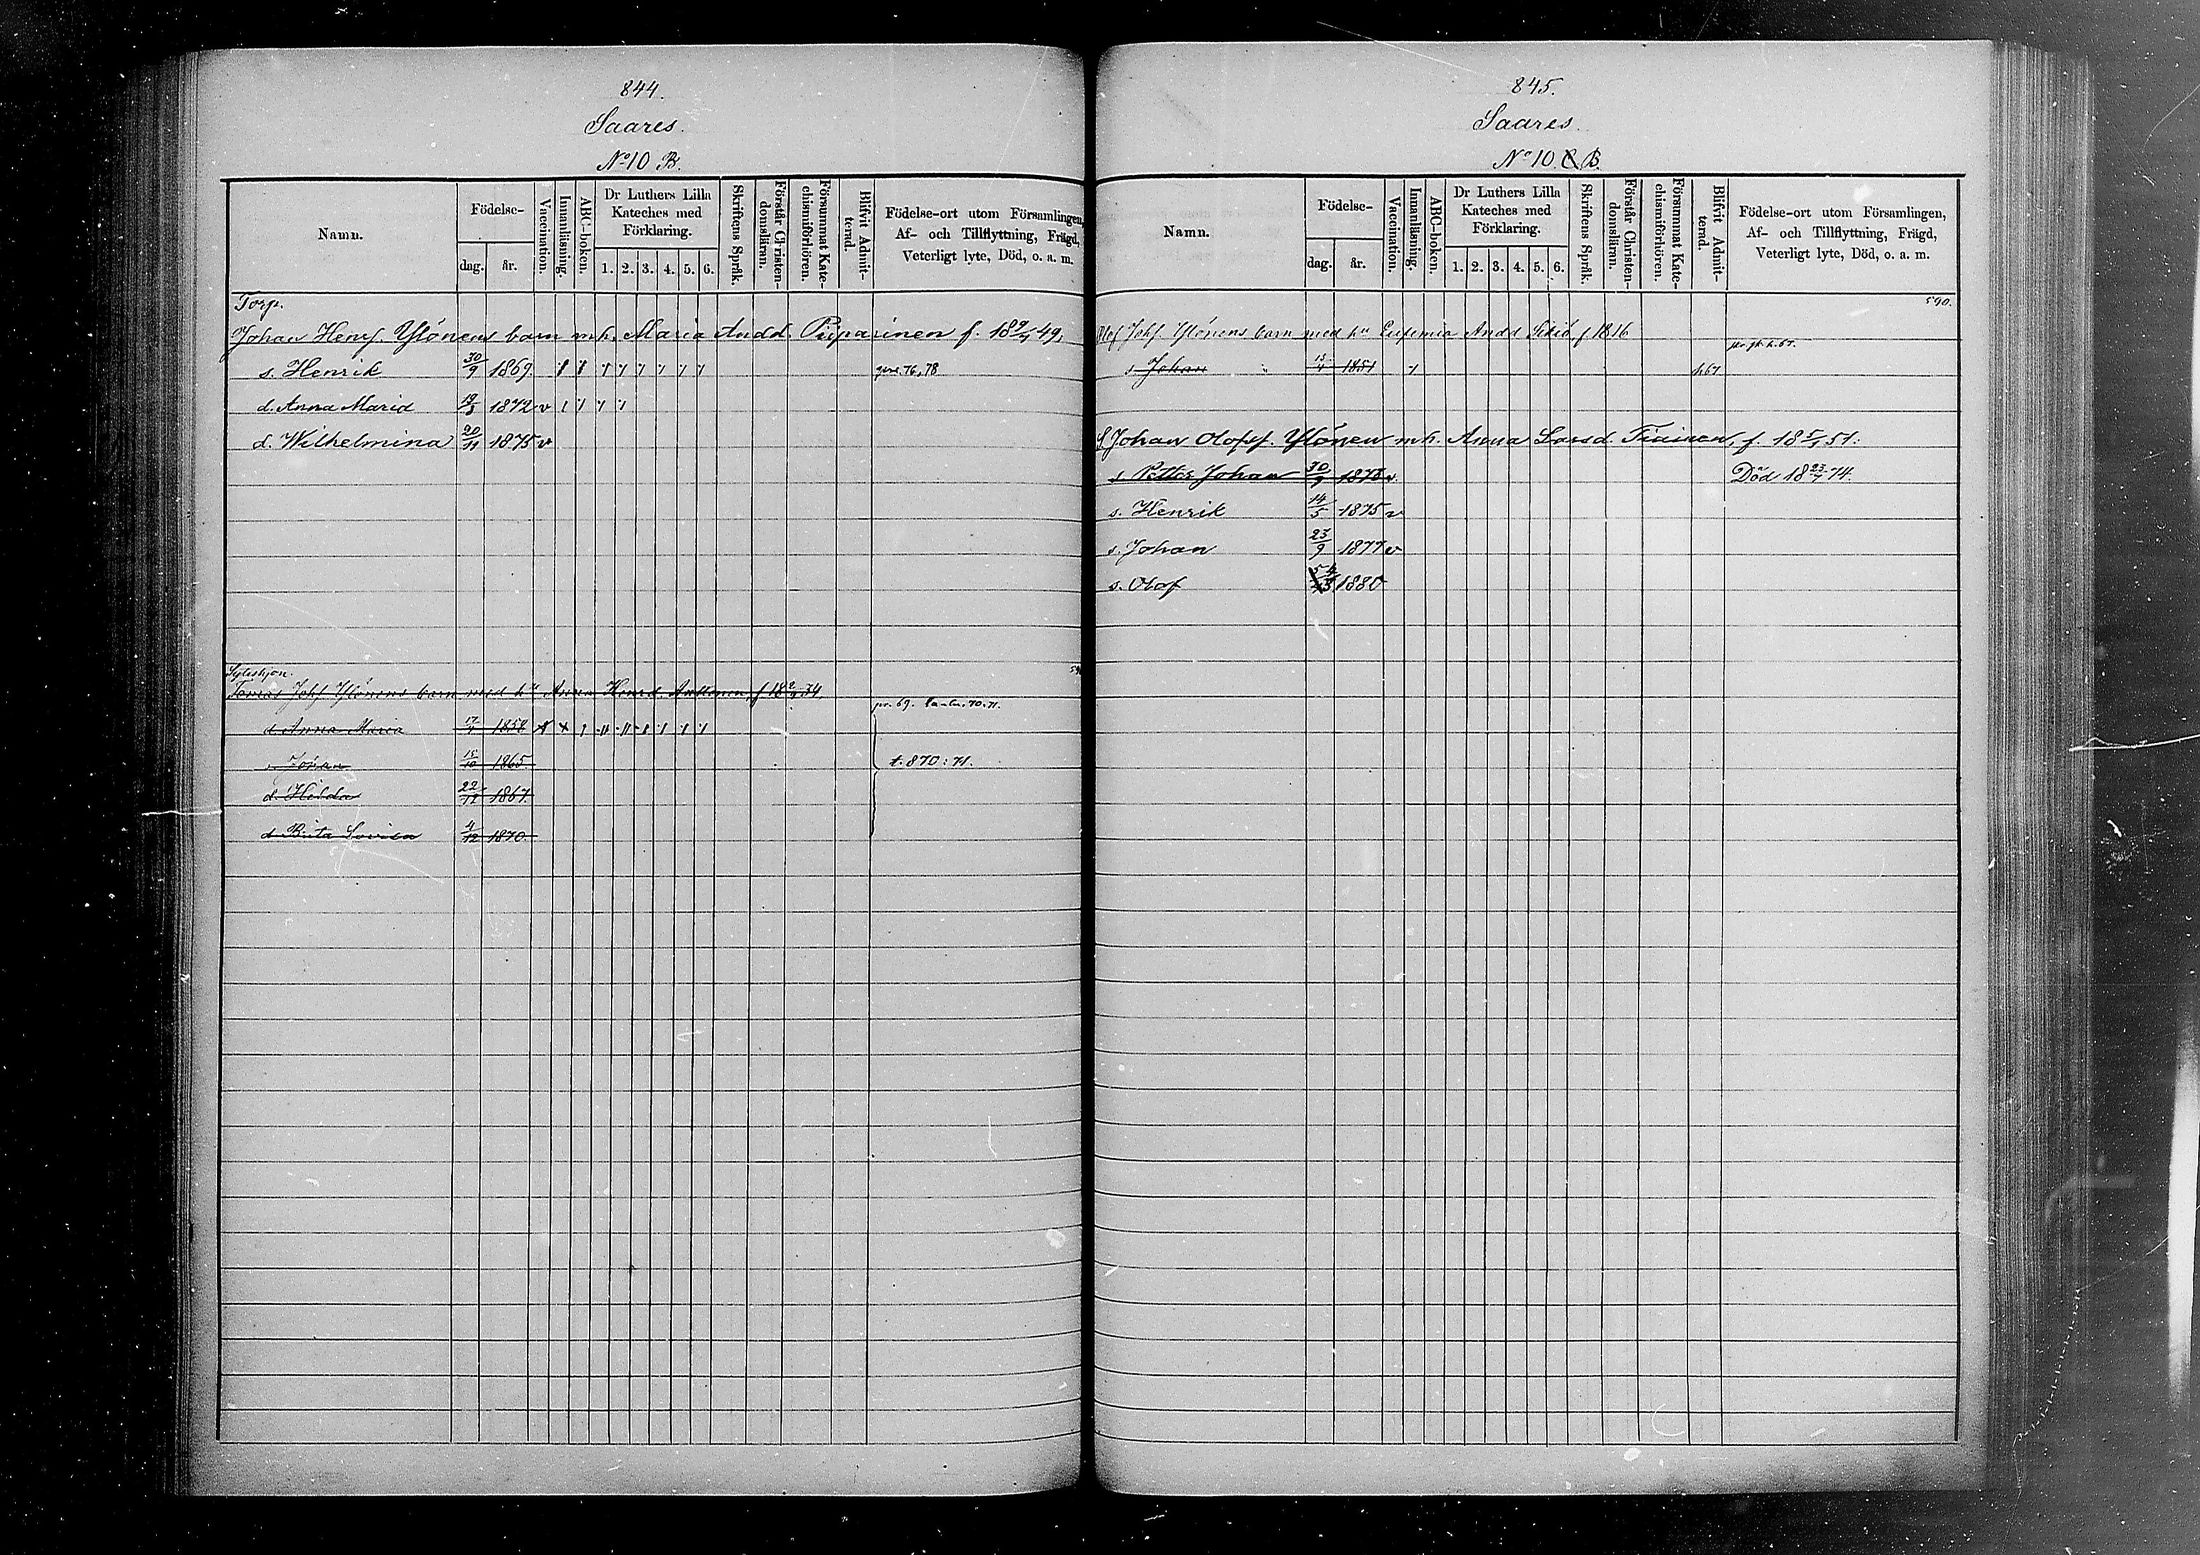 844.
Saares.
No 10 B.
Namn.
Födelse-
dag. år.
Vaccination.
Innanläsning.
ABC-boken.
Dr Luthers Lilla Kateches med Förklaring.
1. 2. 3. 4. 5. 6.
Skriftens Språk.
Förstår Christendomsläran.
Försummat Katechismiförhören.
Blifvit Admitterad.
Födelse-ort utom Församlingen,
Af- och Tillflyttning, Frägd,
Veterligt lyte, Död, o. a. m.
Torp.
Johan Henrs. Ylönens barn m.h. Maria Andd. Piiparinen f. 18 9/4 49,
s. Henrik 30/9 1869. 76, 78
d. Anna Maria 19/3 1872 v
d. Wilhelmina 20/11 1875 v
Ylönens barn med hu Anna Henrd.
pr. 69. 70. 71.
d. Anna Maria 17/4 1858
Johan 15/10 1865
t. 870: 71.
d. Hedda 22/12 1867.
d. Brita Lovisa 4/12 1870.
845.
Saares.
No 10 C B.
Namn.
Födelse-
dag. år.
Vaccination.
Innanläsning.
ABC-boken.
Dr Luthers Lilla Kateches med Förklaring.
1. 2. 3. 4. 5. 6.
Skriftens Språk.
Förstår Christendomsläran.
Försummat Katechismiförhören.
Blifvit Admitterad.
Födelse-ort utom Församlingen,
Af- och Tillflyttning, Frägd,
Veterligt lyte, Död, o. a. m.
590.
Olof Johs. Ylönens barn med hu Eufemia Andd f. 1816
s Johan 1851 h 67
Johan Olofss. Ylönen m.h. Anna Larsd. Tiainen, f. 18 5/4 51.
s Petter Johan 30/9 1873 v. Död 18 23/7 74.
s. Henrik 14/5 1875 v
s. Johan 23/9 1877 v
s. Olof 1880